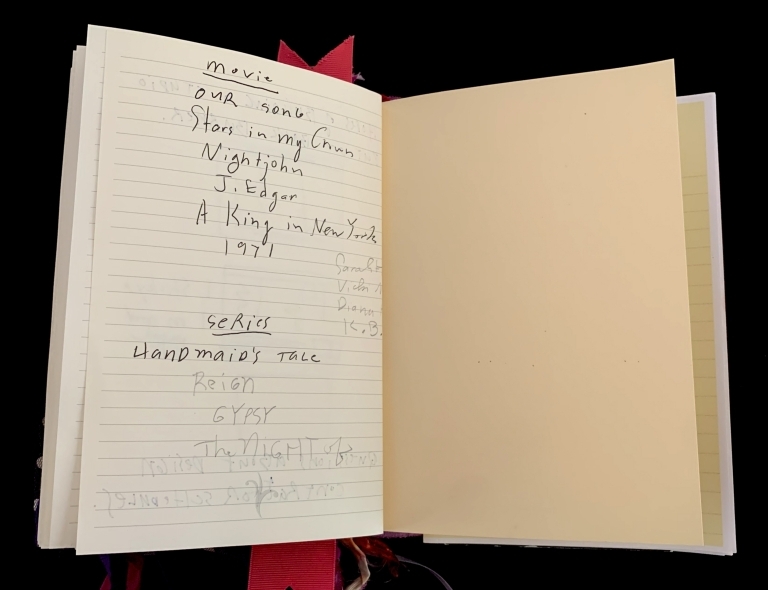 movie
OUR SONG
Stars in my Crwn
Nightjohn
J. Edgar
A King in New York
1971
Sarah
Vicky
Diana
K.B.
SERies
HANDMAID'S TALE
Reign
GYPSY
The NIGHT of